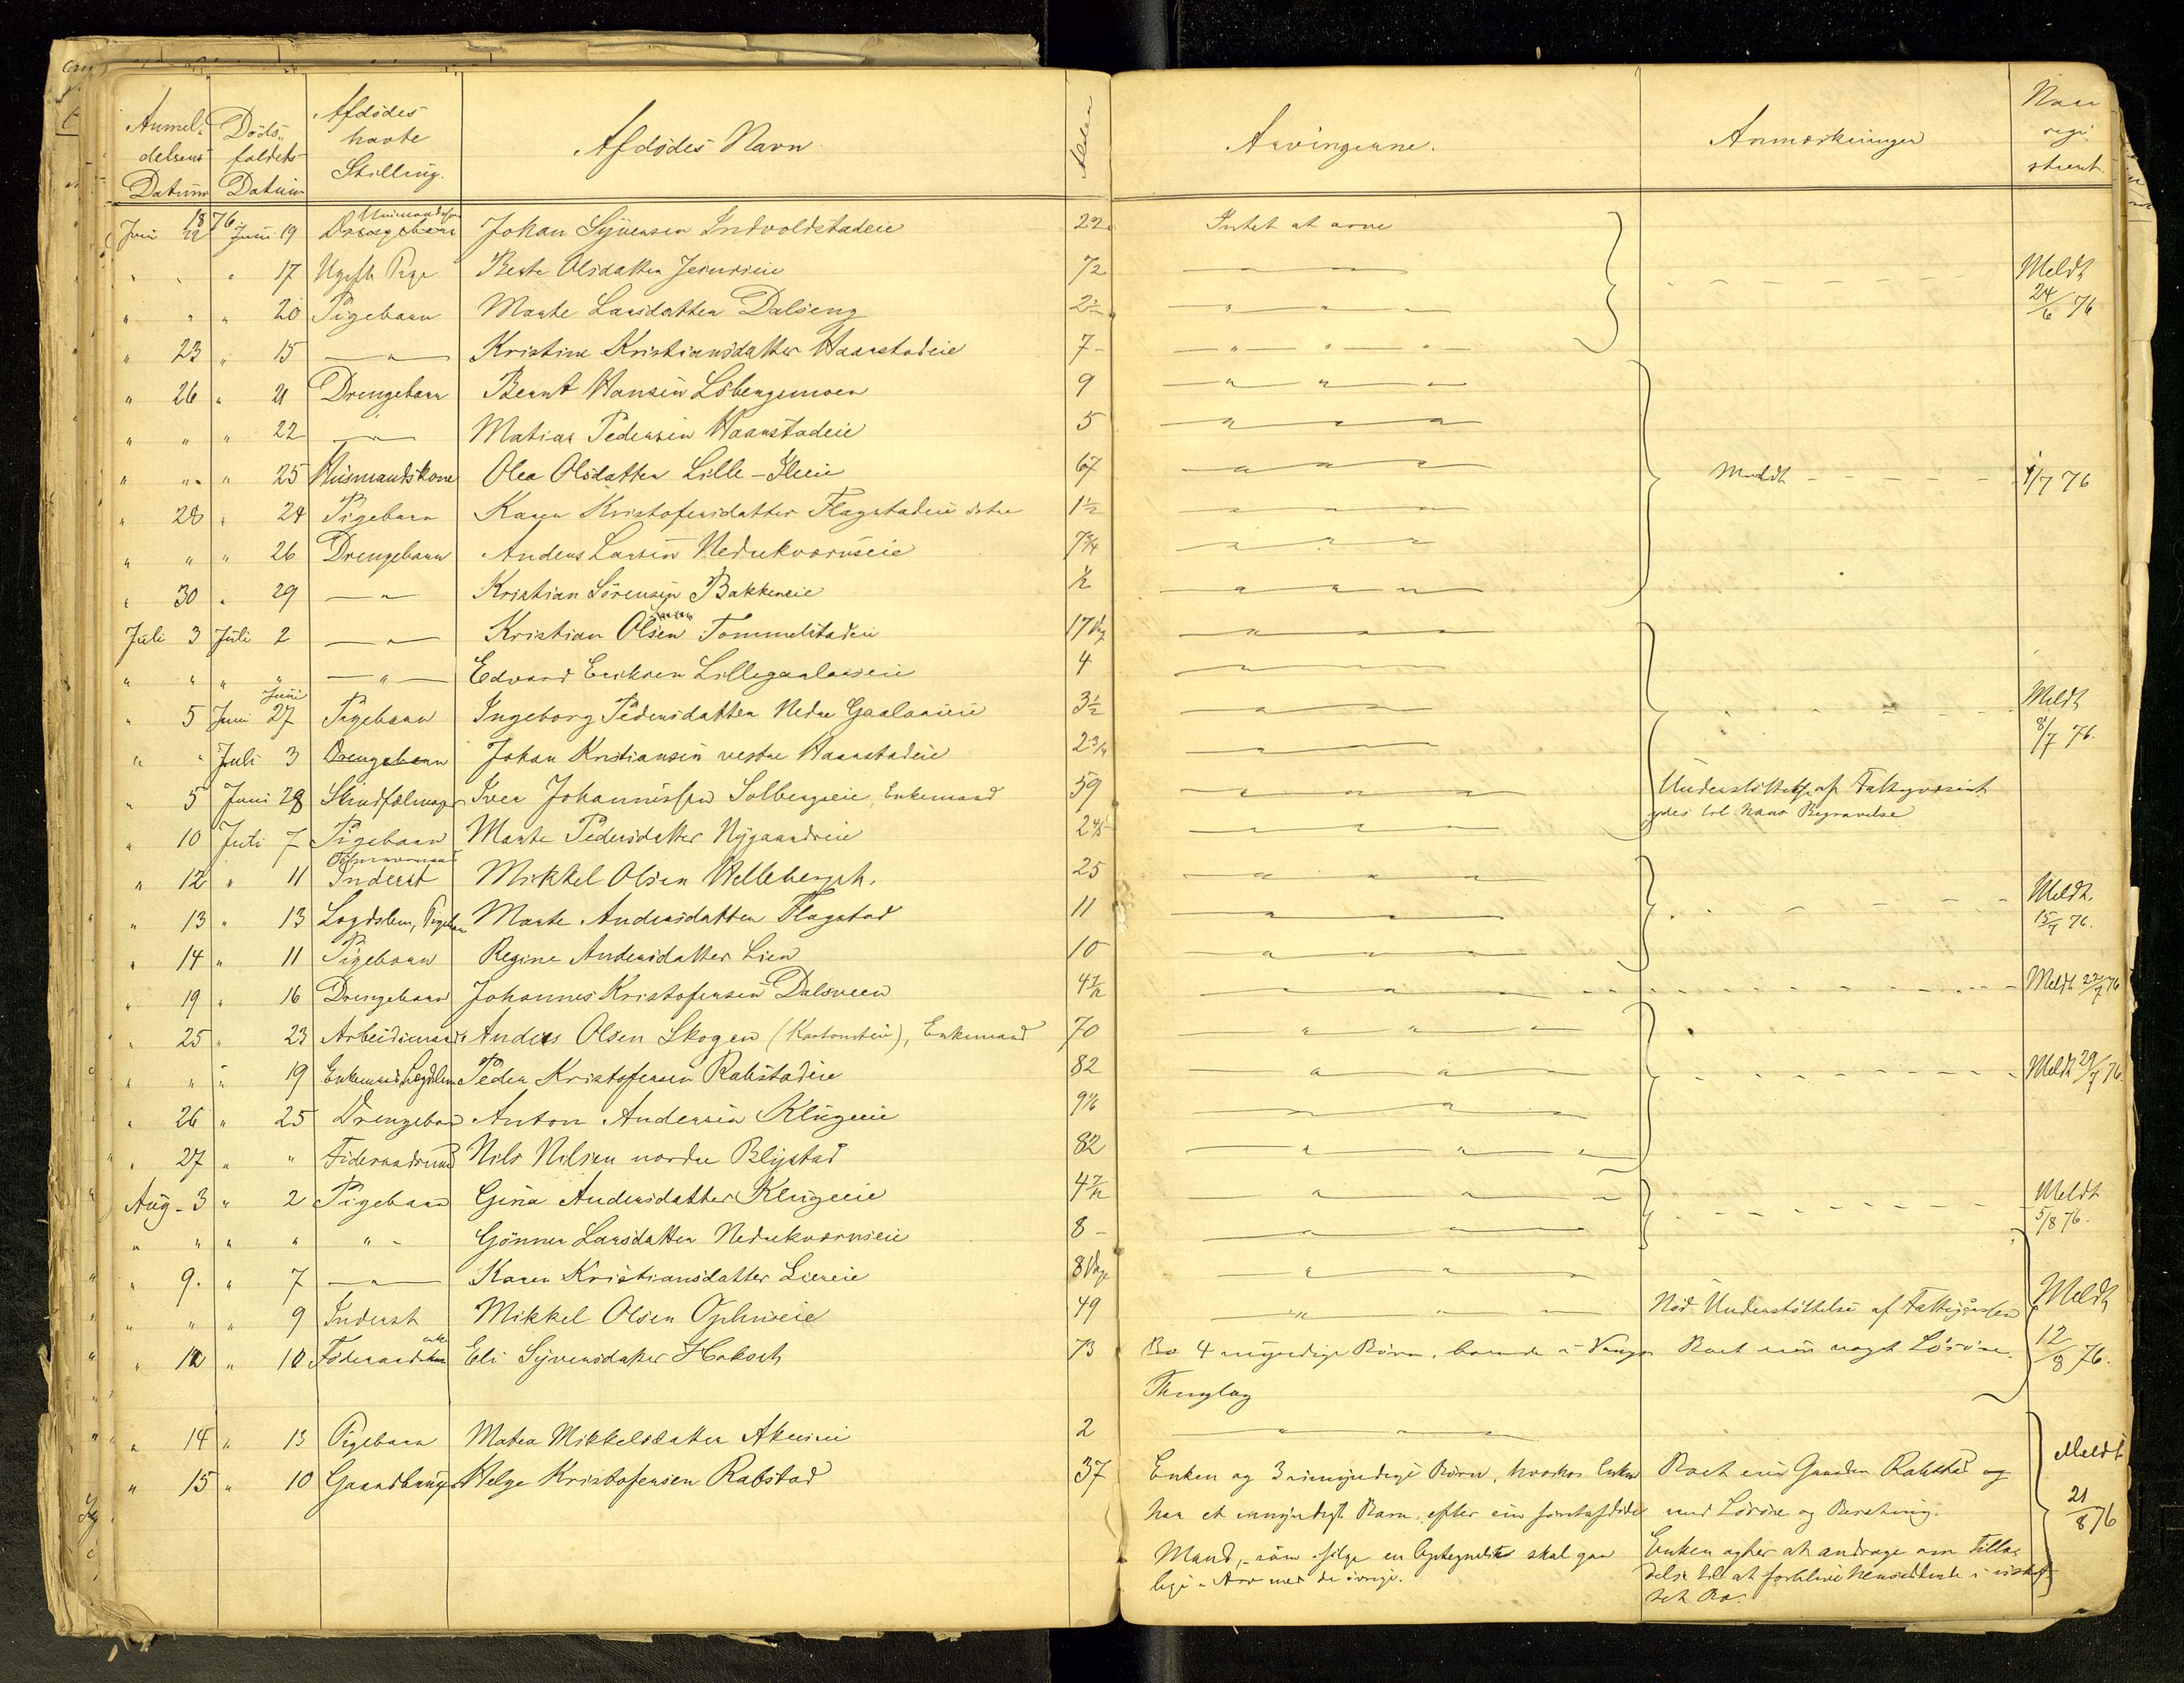 Anmel- Døds- Afdødes Afdødes Navn Alder Arvingerne. Anmærkninger Naar
delsens faldets havte regi-
Datum Datum Stilling. streret
1876
Juni 22 Juni 19 Johan Syversen Indvoldstadeie 22 Intet at arve
" " " 17 Ugift Pige Berte Olsdatter 72 — " —
" " " 20 Pigebarn Marte Larsdatter Dalseng 2½ — " — Meldt 24/6 76
" 23 " 15 — " — Kristine Kristiansdatter Haarstadeie 7 - — " —
" 26 " 21 Drengebarn Bernt Hansen Løbergsmoen 9 — " —
" " " 22 — " — Matias Pedersen Haarstadeie 5 — " —
" " " 25 Husmandskone Olea Olsdatter Lille-Ileie 67 — " — Meldt 1/7 76
" 28 " 24 Pigebarn Karen Kristofersdatter Flagstadeie 1½ — " —
" " " 26 Drengebarn Anders Larsen Nedrekværnseie 7¾ — " —
" 30 " 29 — " — Kristian Sørensen Bakkeneie ½ — " —
Juli 3 Juli 2 — " — Kristian Olsen Tommelstadeie 17 Dg — " —
" " " " — " — Edvard Eriksen Lillegaalaaseie 4 — " —
Juni
" 5 Juni 27 Pigebarn Ingeborg Pedersdatter Nedre Gaalaaseie 3½ — " — Meldt 8/7 76.
" " Juli 3 Drengebarn Johan Kristiansen vestre Haarstadeie 2¾ — " —
" 5 Juni 28 Skindfælmager Iver Johannessen Solbergseie, Enkemand 59 — " — Understøttelse af Fattigvæsenet
" 10 Juli 7 Pigebarn Marte Pedersdatter Nygaardseie 2 4/5 — " — ydes til hans Begravelse
Tømmermand
" 12 " 11 Inderst Mikkel Olsen Hellebergsh. 25 — " —
" 13 " 13 Lægdslem, Pigebarn Marte Andersdatter Flagstad 11 — " — Meldt. 15/7 76.
" 14 " 11 Pigebarn Regine Andersdatter Lien 10 — " —
" 19 " 16 Drengebarn Johannes Kristofersen Dalsveen 4½ — " — Meldt 22/7 76
" 25 " 23 Arbeidsmand Anders Olsen Skogen, Enkemand 70 — " —
" " " 19 Enkemand, Lægdslem Peder Kristofersen Rabstadeie 82 — " — Meldt 29/7 76.
" 26 " 25 Drengebarn Anton Andersen Klugeeie 9½ — " —
" 27 " " Føderaadsmand Nils Nilsen nordre Blystad 82 — " —
Aug. 3 " 2 Pigebarn Gina Andersdatter Klugeeie 4½ — " — Meldt
" " " " " - Gönner Larsdatter Nedrekværnseie 8 - — " — 5/8 76.
" 9. " 7 — " — Karen Kristiansdatter Lieneie 8 Dge — " —
" " " 9 Inderst Mikkel Olsen Ophuseie 49 — " — Nød Understøttelse af Fattigkassen Meldt
" 12 " 10 Føderaadsenke Eli Syversdatter Hakost 73 4 myndige Børn, boende i Vangs Boet eier noget Løsøre. 12/8 76.
Thinglag
" 14 " 13 Pigebarn Matea Mikkelsdatter 2 — " — Meldt
" 15 " 10 Gaardbruger Helge Kristofersen Rabstad 37 Enken og 3 umyndige Børn, hvorhos Enken Boet eier Gaarden Rabstad og
har et umyndigt Barn, efter sin førstafdøde med Løsøre og Besætning. 21/8 76
Mand, - som ifølge en Optegnelse skal gaa Enken agter at andrage om Tilla-
lige i Arv med de øvrige. delse til at forblive hensiddende i uskif-
tet Bo.